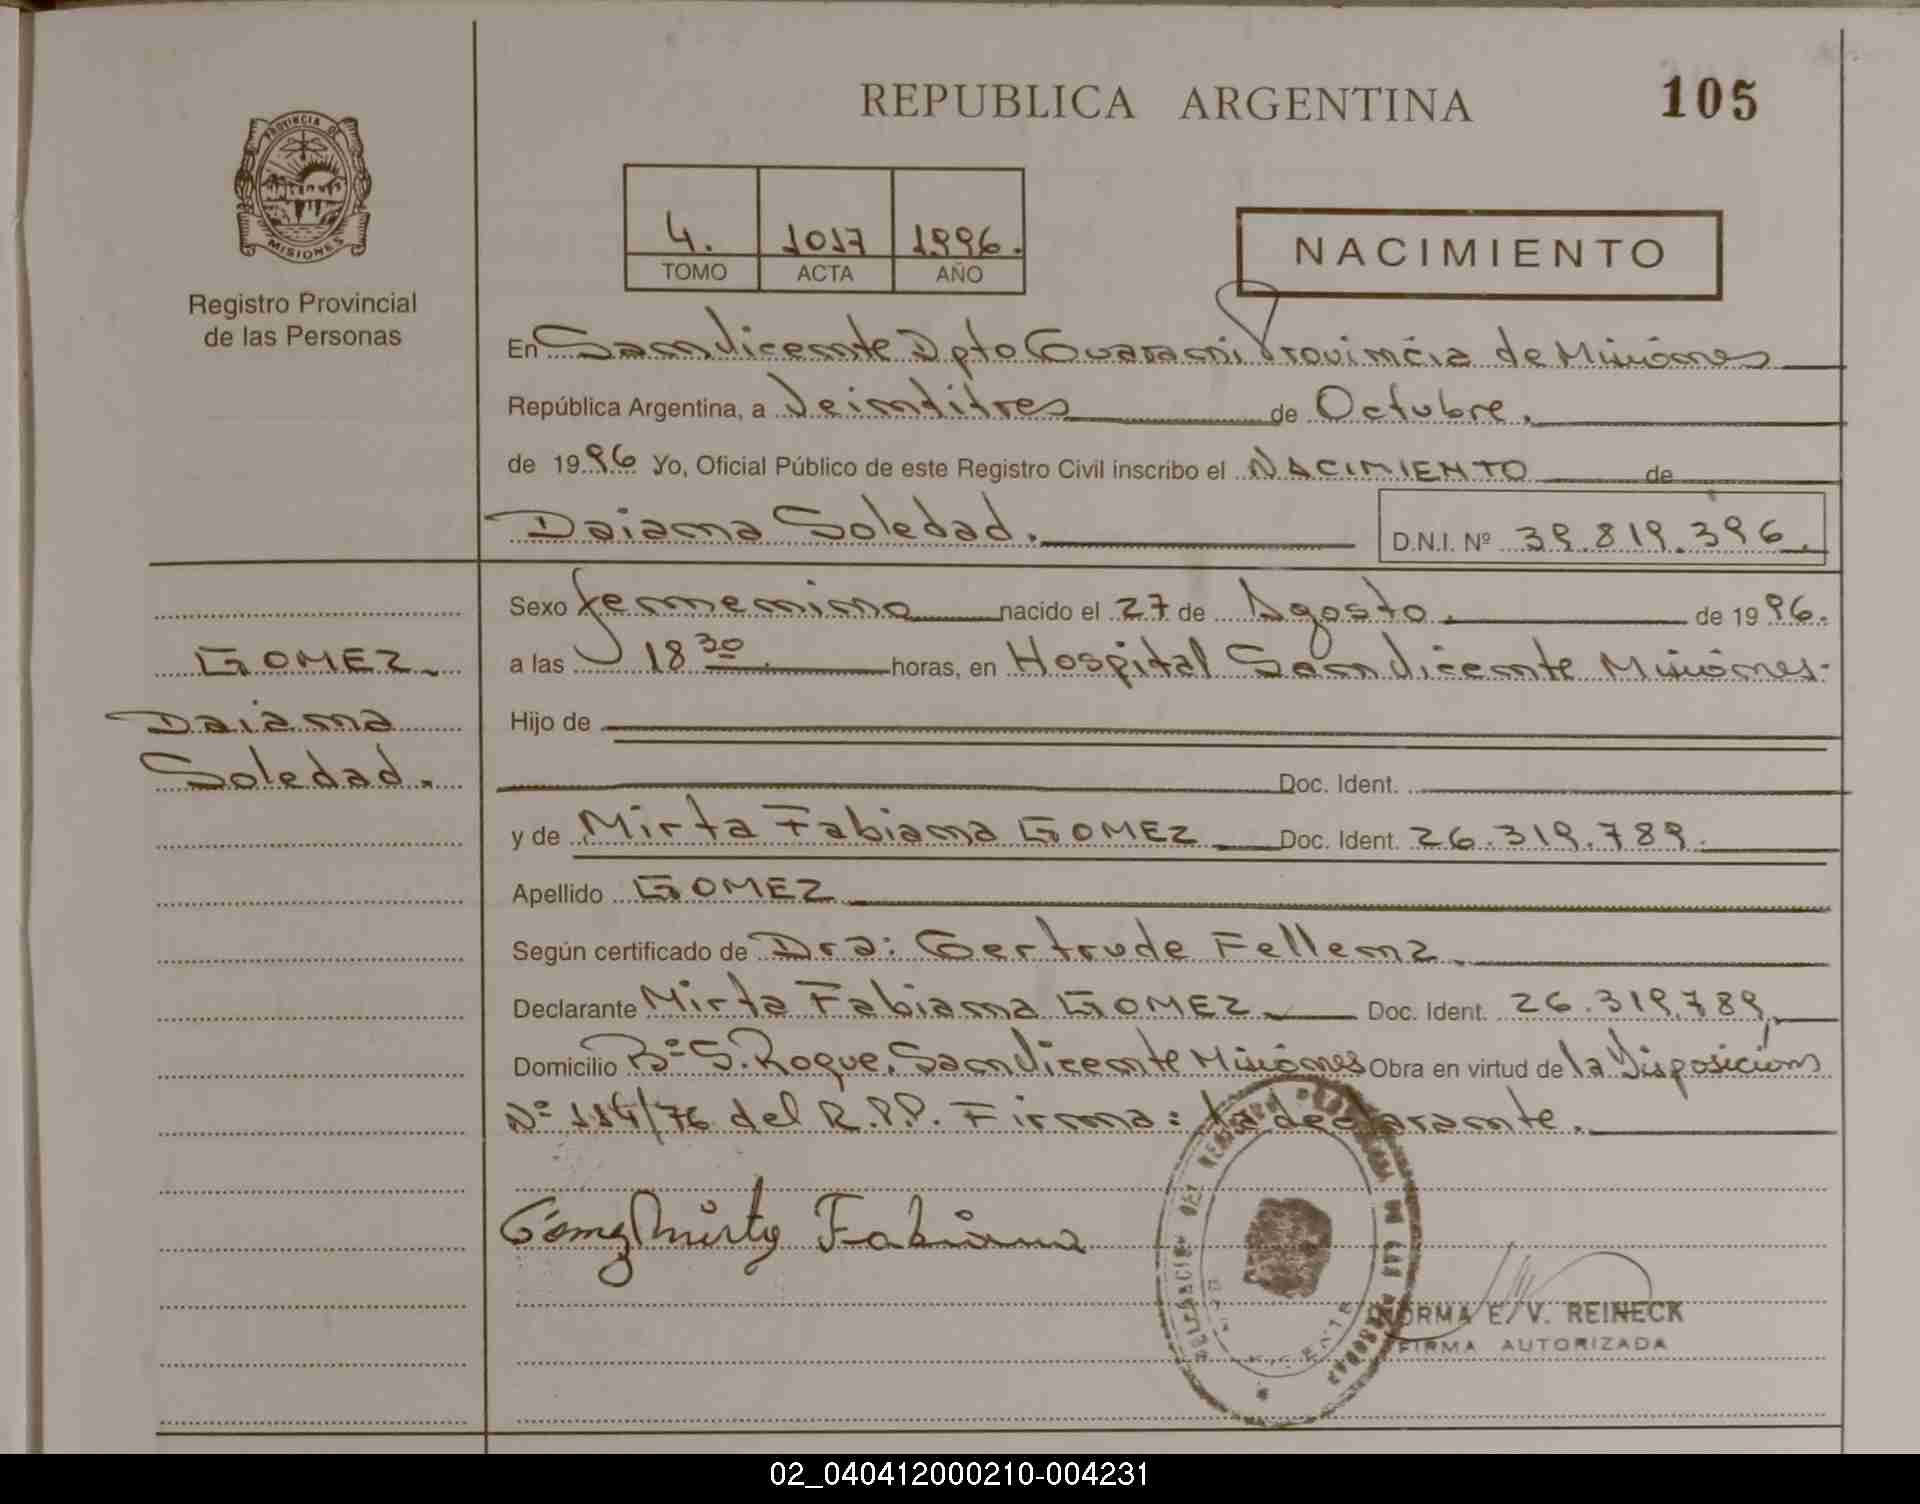 REPUBLICA ARGENTINA
105
PROVINCIA DE
MISIONES
Registro Provincial
de las Personas
4. 1017 1996.
TOMO ACTA AÑO
NACIMIENTO
En San Vicente Dpto Guarani Provincia de Misiones
República Argentina, a Veintitres de Octubre.
de 1996 Yo, Oficial Público de este Registro Civil inscribo el NACIMIENTO de
Daiana Soledad.
D.N.I. Nº 39.819.396.
GOMEZ.
Daiana
Soledad.
Sexo femenino nacido el 27 de Agosto. de 1996.
a las 18 30. horas, en Hospital San Vicente Misiones.
Hijo de
Doc. Ident.
y de Mirta Fabiana GOMEZ Doc. Ident. 26.319.789.
Apellido GOMEZ
Según certificado de Dra: Gertrude Fellenz.
Declarante Mirta Fabiana GOMEZ Doc. Ident. 26.319.789,
Domicilio Bº S. Roque. San Vicente Misiones Obra en virtud de la Disposición
Nº 114/76 del R.P.P. Firma: La declarante.
Gomez Mirta Fabiana
NORMA E. V. REINECK
FIRMA AUTORIZADA
02_040412000210-004231